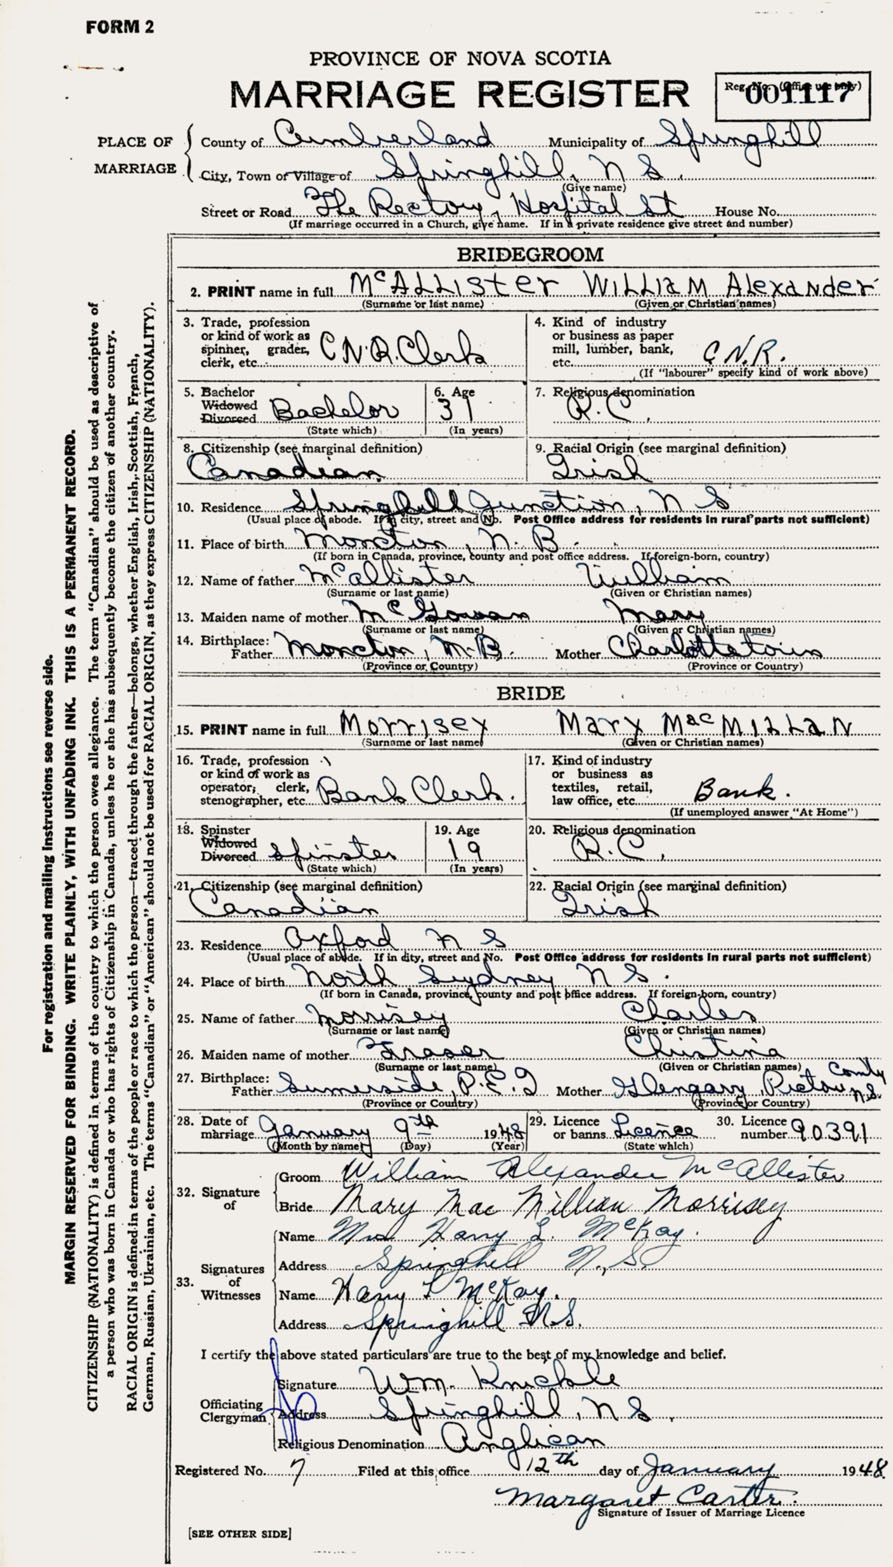 FORM 2
PROVINCE OF NOVA SCOTIA
MARRIAGE REGISTER
Reg. No. (Office use only)
001117
PLACE OF MARRIAGE
County of Cumberland Municipality of Springhill
City, Town or Village of Springhill, N S.
(Give name)
Street or Road The Rectory, Hospital St House No.
(If marriage occurred in a Church, give name. If in a private residence give street and number)
BRIDEGROOM
2. PRINT name in full McAllister William Alexander
(Surname or last name) (Given or Christian names)
3. Trade, profession or kind of work as spinner, grader, clerk, etc. C.N.R. Clerk
4. Kind of industry or business as paper mill, lumber, bank, etc. C.N.R.
(If "labourer" specify kind of work above)
5. Bachelor Widowed Divorced Bachelor
(State which)
6. Age 31
(In years)
7. Religious denomination
R.C.
8. Citizenship (see marginal definition)
Canadian
9. Racial Origin (see marginal definition)
Irish
10. Residence Springhill Junction, N S
(Usual place of abode. If in city, street and No. Post Office address for residents in rural parts not sufficient)
11. Place of birth Moncton, N. B.
(If born in Canada, province, county and post office address. If foreign-born, country)
12. Name of father McAllister William
(Surname or last name) (Given or Christian names)
13. Maiden name of mother McGowan Mary
(Surname or last name) (Given or Christian names)
14. Birthplace: Father Moncton, N.B. Mother Charlottetown
(Province or Country) (Province or Country)
BRIDE
15. PRINT name in full Morrisey Mary MacMillan
(Surname or last name) (Given or Christian names)
16. Trade, profession or kind of work as operator, clerk, stenographer, etc. Bank Clerk.
17. Kind of industry or business as textiles, retail, law office, etc. Bank.
(If unemployed answer "At Home")
18. Spinster Widowed Divorced Spinster
(State which)
19. Age 19
(In years)
20. Religious denomination
R.C.
21. Citizenship (see marginal definition)
Canadian
22. Racial Origin (see marginal definition)
Irish
23. Residence Oxford N S
(Usual place of abode. If in city, street and No. Post Office address for residents in rural parts not sufficient)
24. Place of birth North Sydney N S.
(If born in Canada, province, county and post office address. If foreign-born, country)
25. Name of father Morrisey Charles
(Surname or last name) (Given or Christian names)
26. Maiden name of mother Fraser Christina
(Surname or last name) (Given or Christian names)
27. Birthplace: Father Summerside, P.E.I Mother Glengary, Pictou County N.S.
(Province or Country) (Province or Country)
28. Date of marriage January 9th 1948
(Month by name) (Day) (Year)
29. Licence or banns Licence
(State which)
30. Licence number 90391
32. Signature of
Groom William Alexander McAllister
Bride Mary MacMillian Morrisey
33. Signatures of Witnesses
Name Mrs Harry L. McKay.
Address Springhill N.S.
Name Harry L McKay.
Address Springhill N.S.
I certify the above stated particulars are true to the best of my knowledge and belief.
Officiating Clergyman
Signature Wm. Knickle
Address Springhill, N S.
Religious Denomination Anglican
Registered No. 7 Filed at this office 12th day of January 1948
Margaret Carter.
Signature of Issuer of Marriage Licence
[SEE OTHER SIDE]
For registration and mailing instructions see reverse side.
MARGIN RESERVED FOR BINDING. WRITE PLAINLY, WITH UNFADING INK. THIS IS A PERMANENT RECORD.
CITIZENSHIP (NATIONALITY) is defined in terms of the country to which the person owes allegiance. The term "Canadian" should be used as descriptive of
a person who was born in Canada or who has rights of Citizenship in Canada, unless he or she has subsequently become the citizen of another country.
RACIAL ORIGIN is defined in terms of the people or race to which the person—traced through the father—belongs, whether English, Irish, Scottish, French,
German, Russian, Ukrainian, etc. The terms "Canadian" or "American" should not be used for RACIAL ORIGIN, as they express CITIZENSHIP (NATIONALITY).